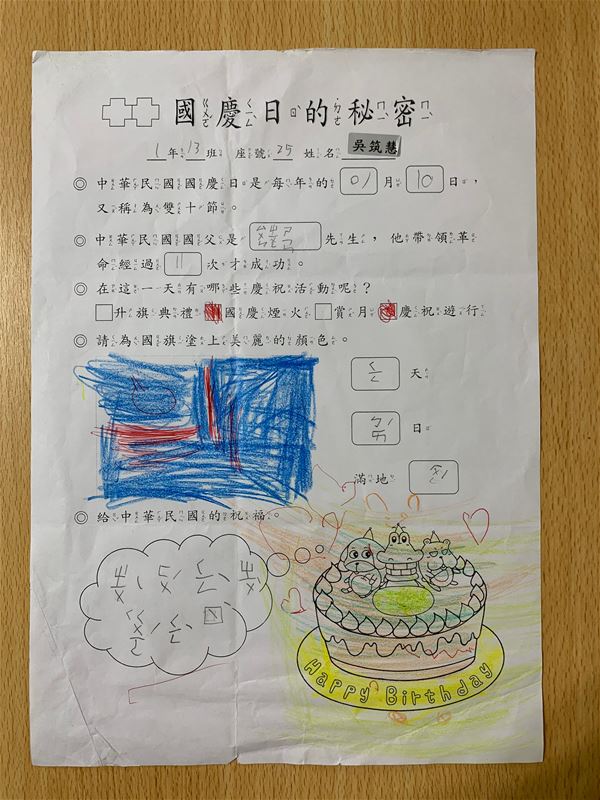 國慶日的秘密
1年13班 座號25 姓名 吳筑慧
◎ 中華民國國慶日是每年的 01 月 10 日，
又稱為雙十節。
◎ 中華民國國父是 先生，他帶領革
命經過 11 次才成功。
◎ 在這一天有哪些慶祝活動呢？
升旗典禮 國慶煙火 賞月 慶祝遊行
◎ 請為國旗塗上美麗的顏色。
ㄑㄧㄥ 天
ㄅㄞˊ 日
滿地
◎ 給中華民國的祝福。
Happy Birthday